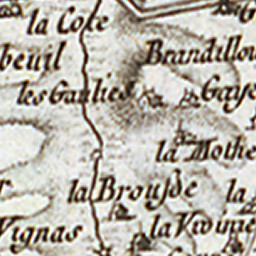 la Coste
beuil
Brandillou
les Gaulies
Gaye
la Mothe
la Brousde
la
Vignas
la Vivinie